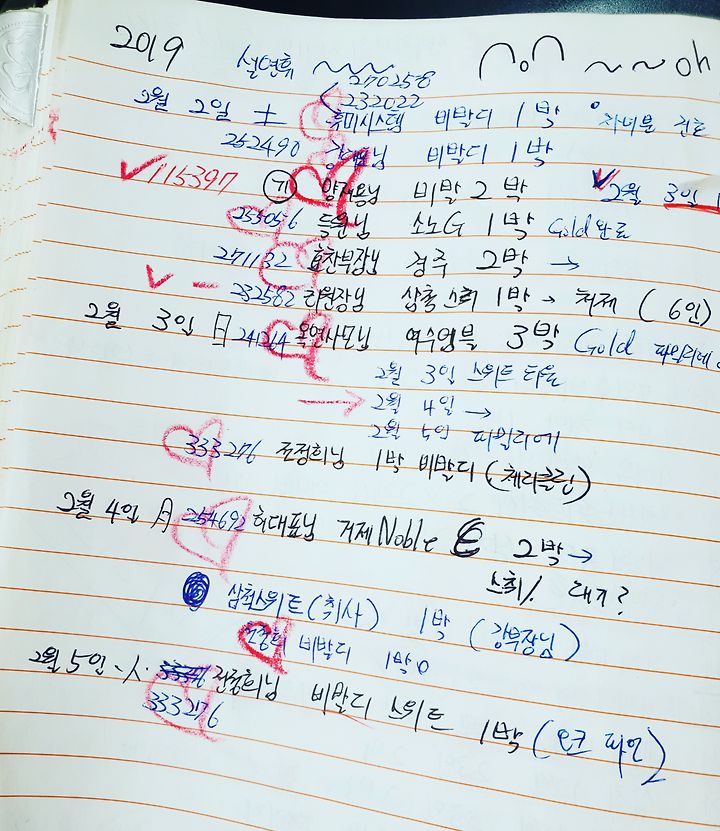 2019 설연휴 oh
270258
232022
2월 2일 土 휴미시스템 비발디 1박
252490 님 비발디 1박
115397 님 비발 2박 2월 3일
233056 득원님 소노G 1박 Gold 완료
271132 효찬부장님 경주 2박 →
232582 리원장님 삼척 스위 1박 → 처제 (6인)
2월 3일 日 241214 옥연사모님 여수엠블 3박 Gold
2월 3일 스위트
→ 2월 4일 →
2월 5일 패밀리에
333276 조정희님 1박 비발디 (체리클립)
2월 4일 月 254692 허대표님 거제 Noble 2박 →
대기?
삼척스위트(취사) 1박 (강부장님)
비발디 1박
2월 5일 전정희님 비발디 스위트 1박 (오크 파인)
333276